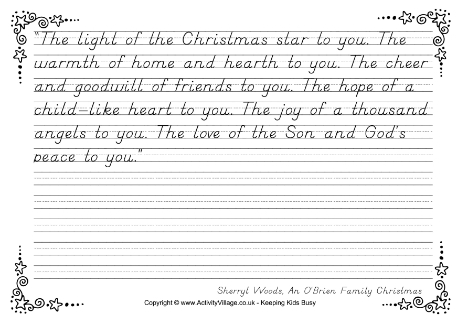 "The light of the Christmas star to you. The
warmth of home and hearth to you. The cheer
and goodwill of friends to you. The hope of a
child-like heart to you. The joy of a thousand
angels to you. The love of the Son and God's
peace to you."
Sherryl Woods, An O'Brien Family Christmas
Copyright © www.ActivityVillage.co.uk - Keeping Kids Busy